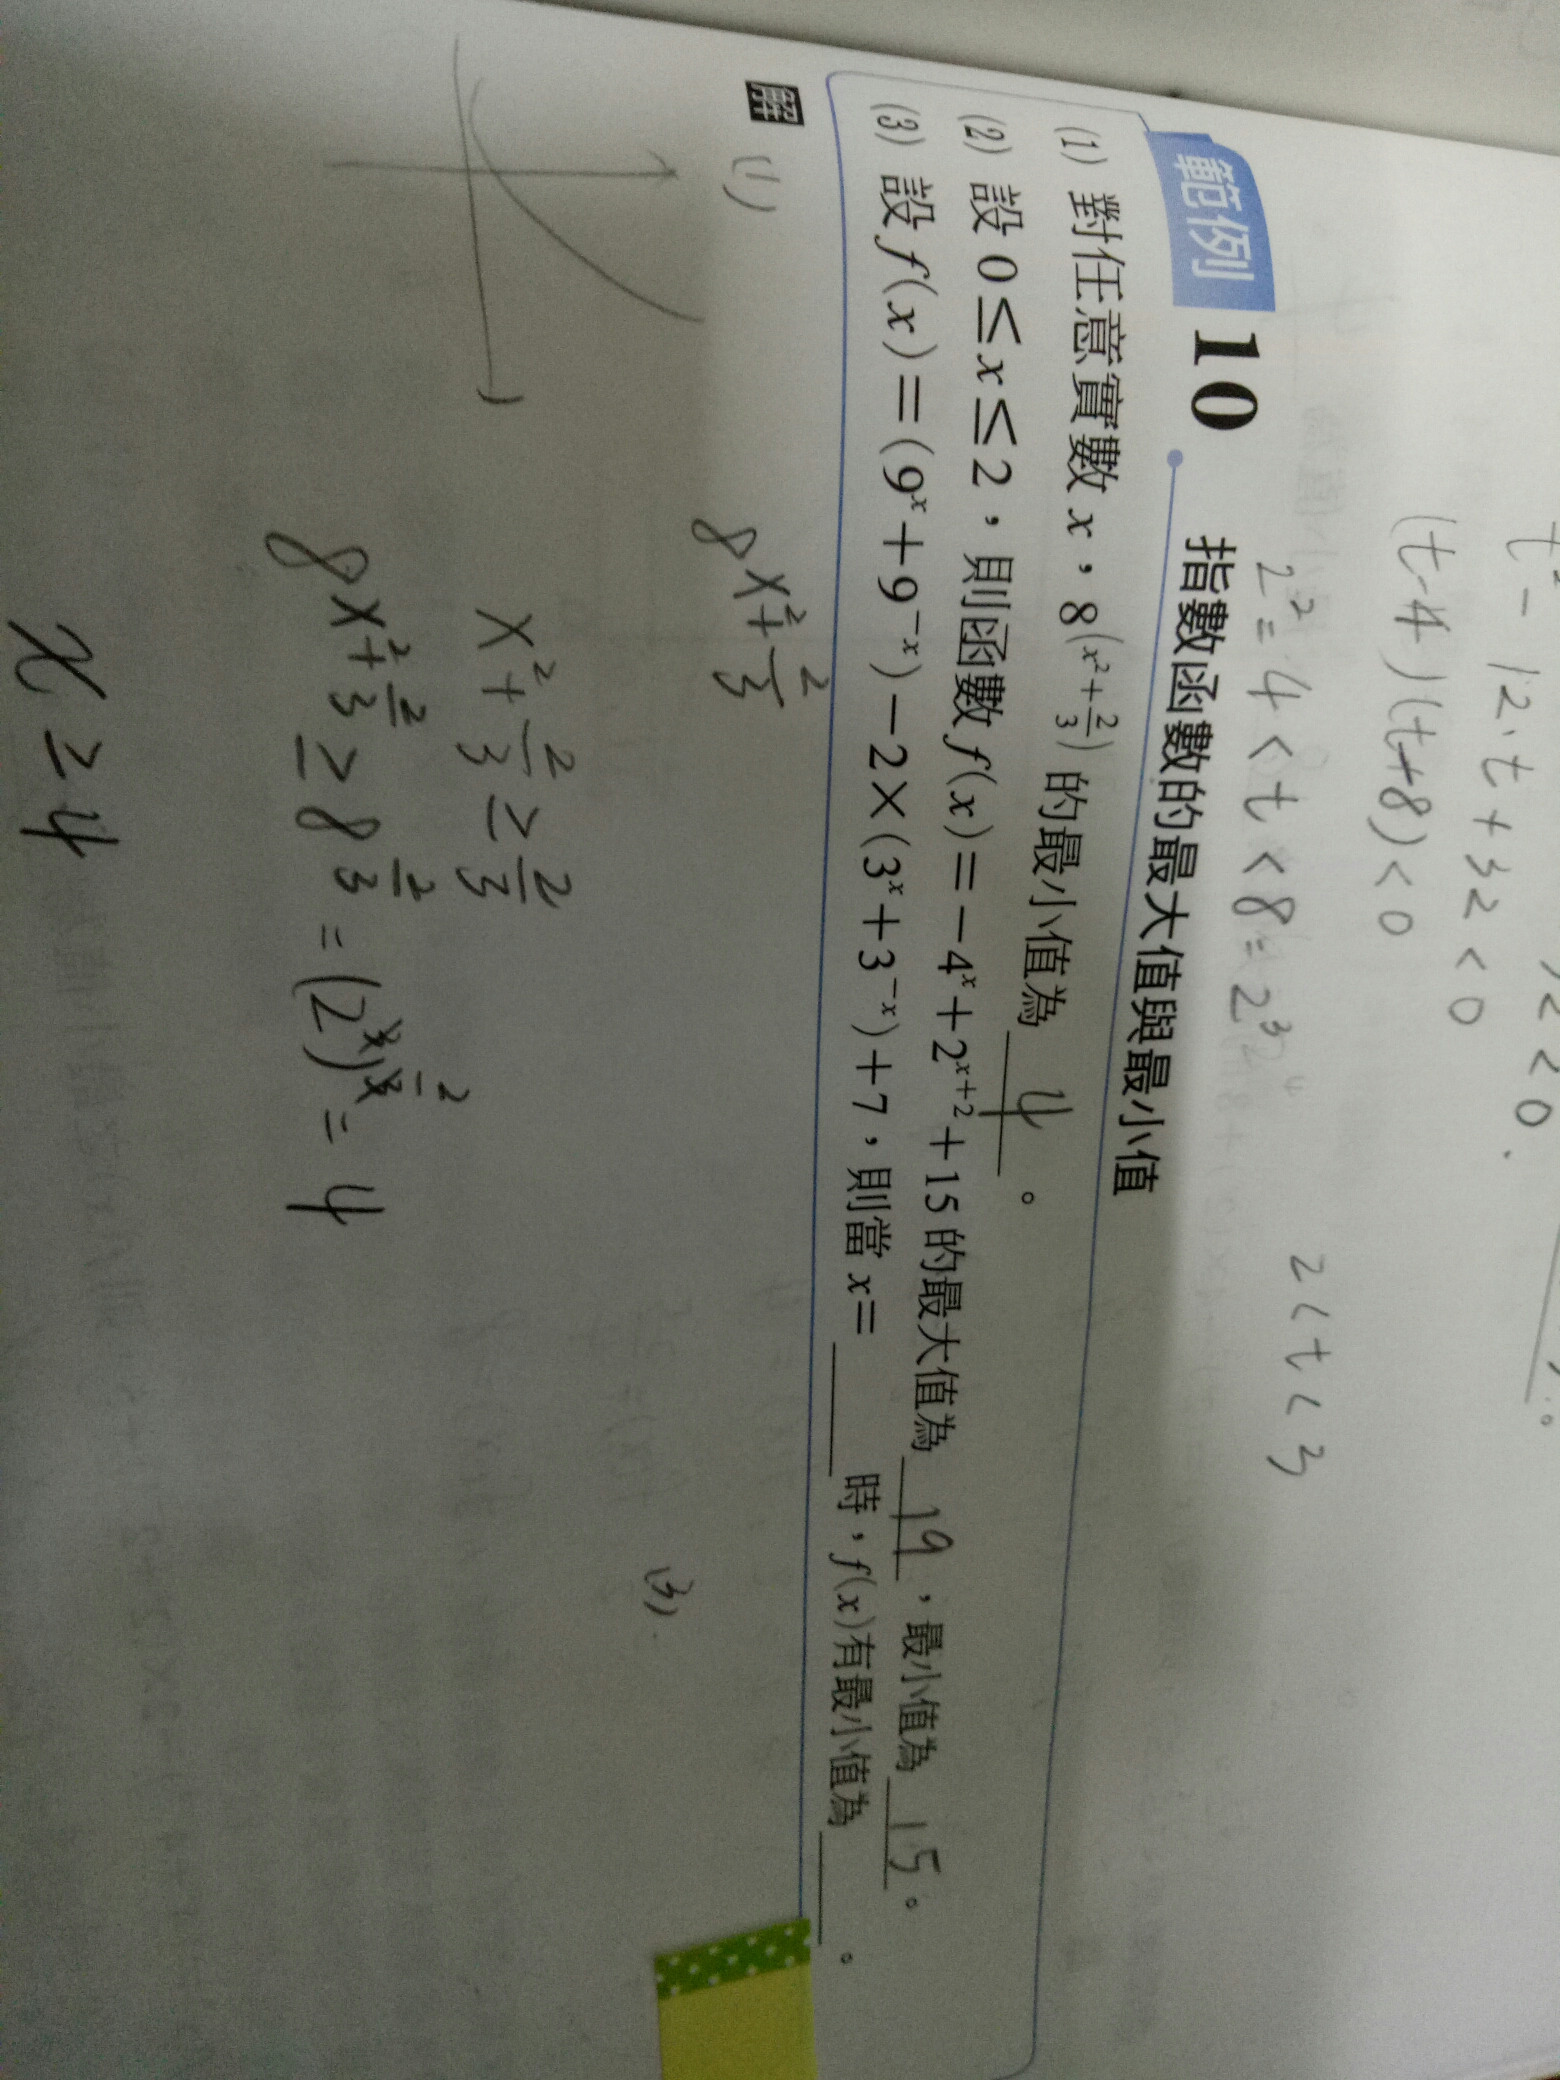 t² - 12·t + 32 < 0
(t-4)(t+8) < 0
2² = 4 < t < 8 = 2³
2 < t < 3
範例 10 指數函數的最大值與最小值
(1) 對任意實數 x，8^(x²+2/3) 的最小值為 4 。
(2) 設 0≤x≤2，則函數 f(x)=−4^x+2^(x+2)+15 的最大值為 19 ，最小值為 15 。
(3) 設 f(x)=(9^x+9^−x)−2×(3^x+3^−x)+7，則當 x= 時，f(x)有最小值為 。
解 (1)
8^x²+2/3
(3)
x²+2/3 ≥ 2/3
8^x²+2/3 ≥ 8^2/3 = (2 ) ² = 4
x ≥ 4